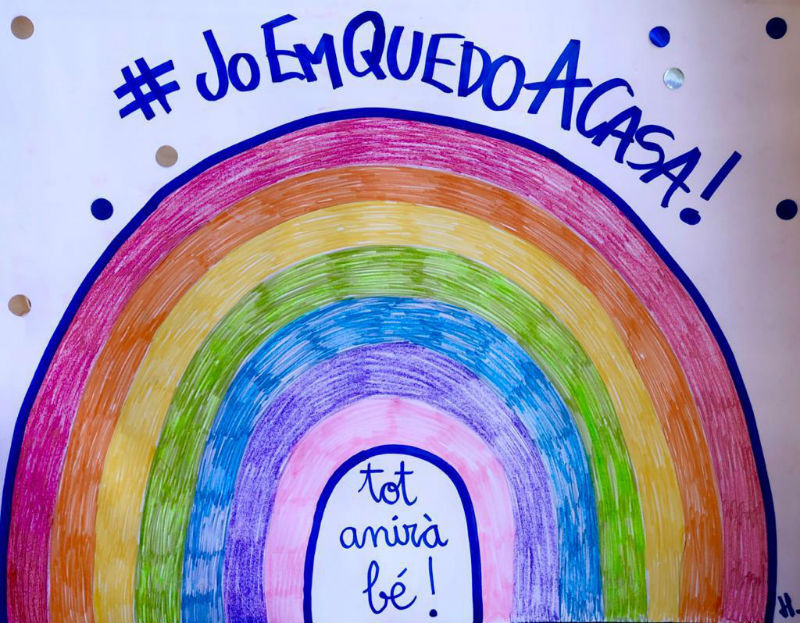 #JoEmQUEDOACASA!
tot
anirà
bé!
H.